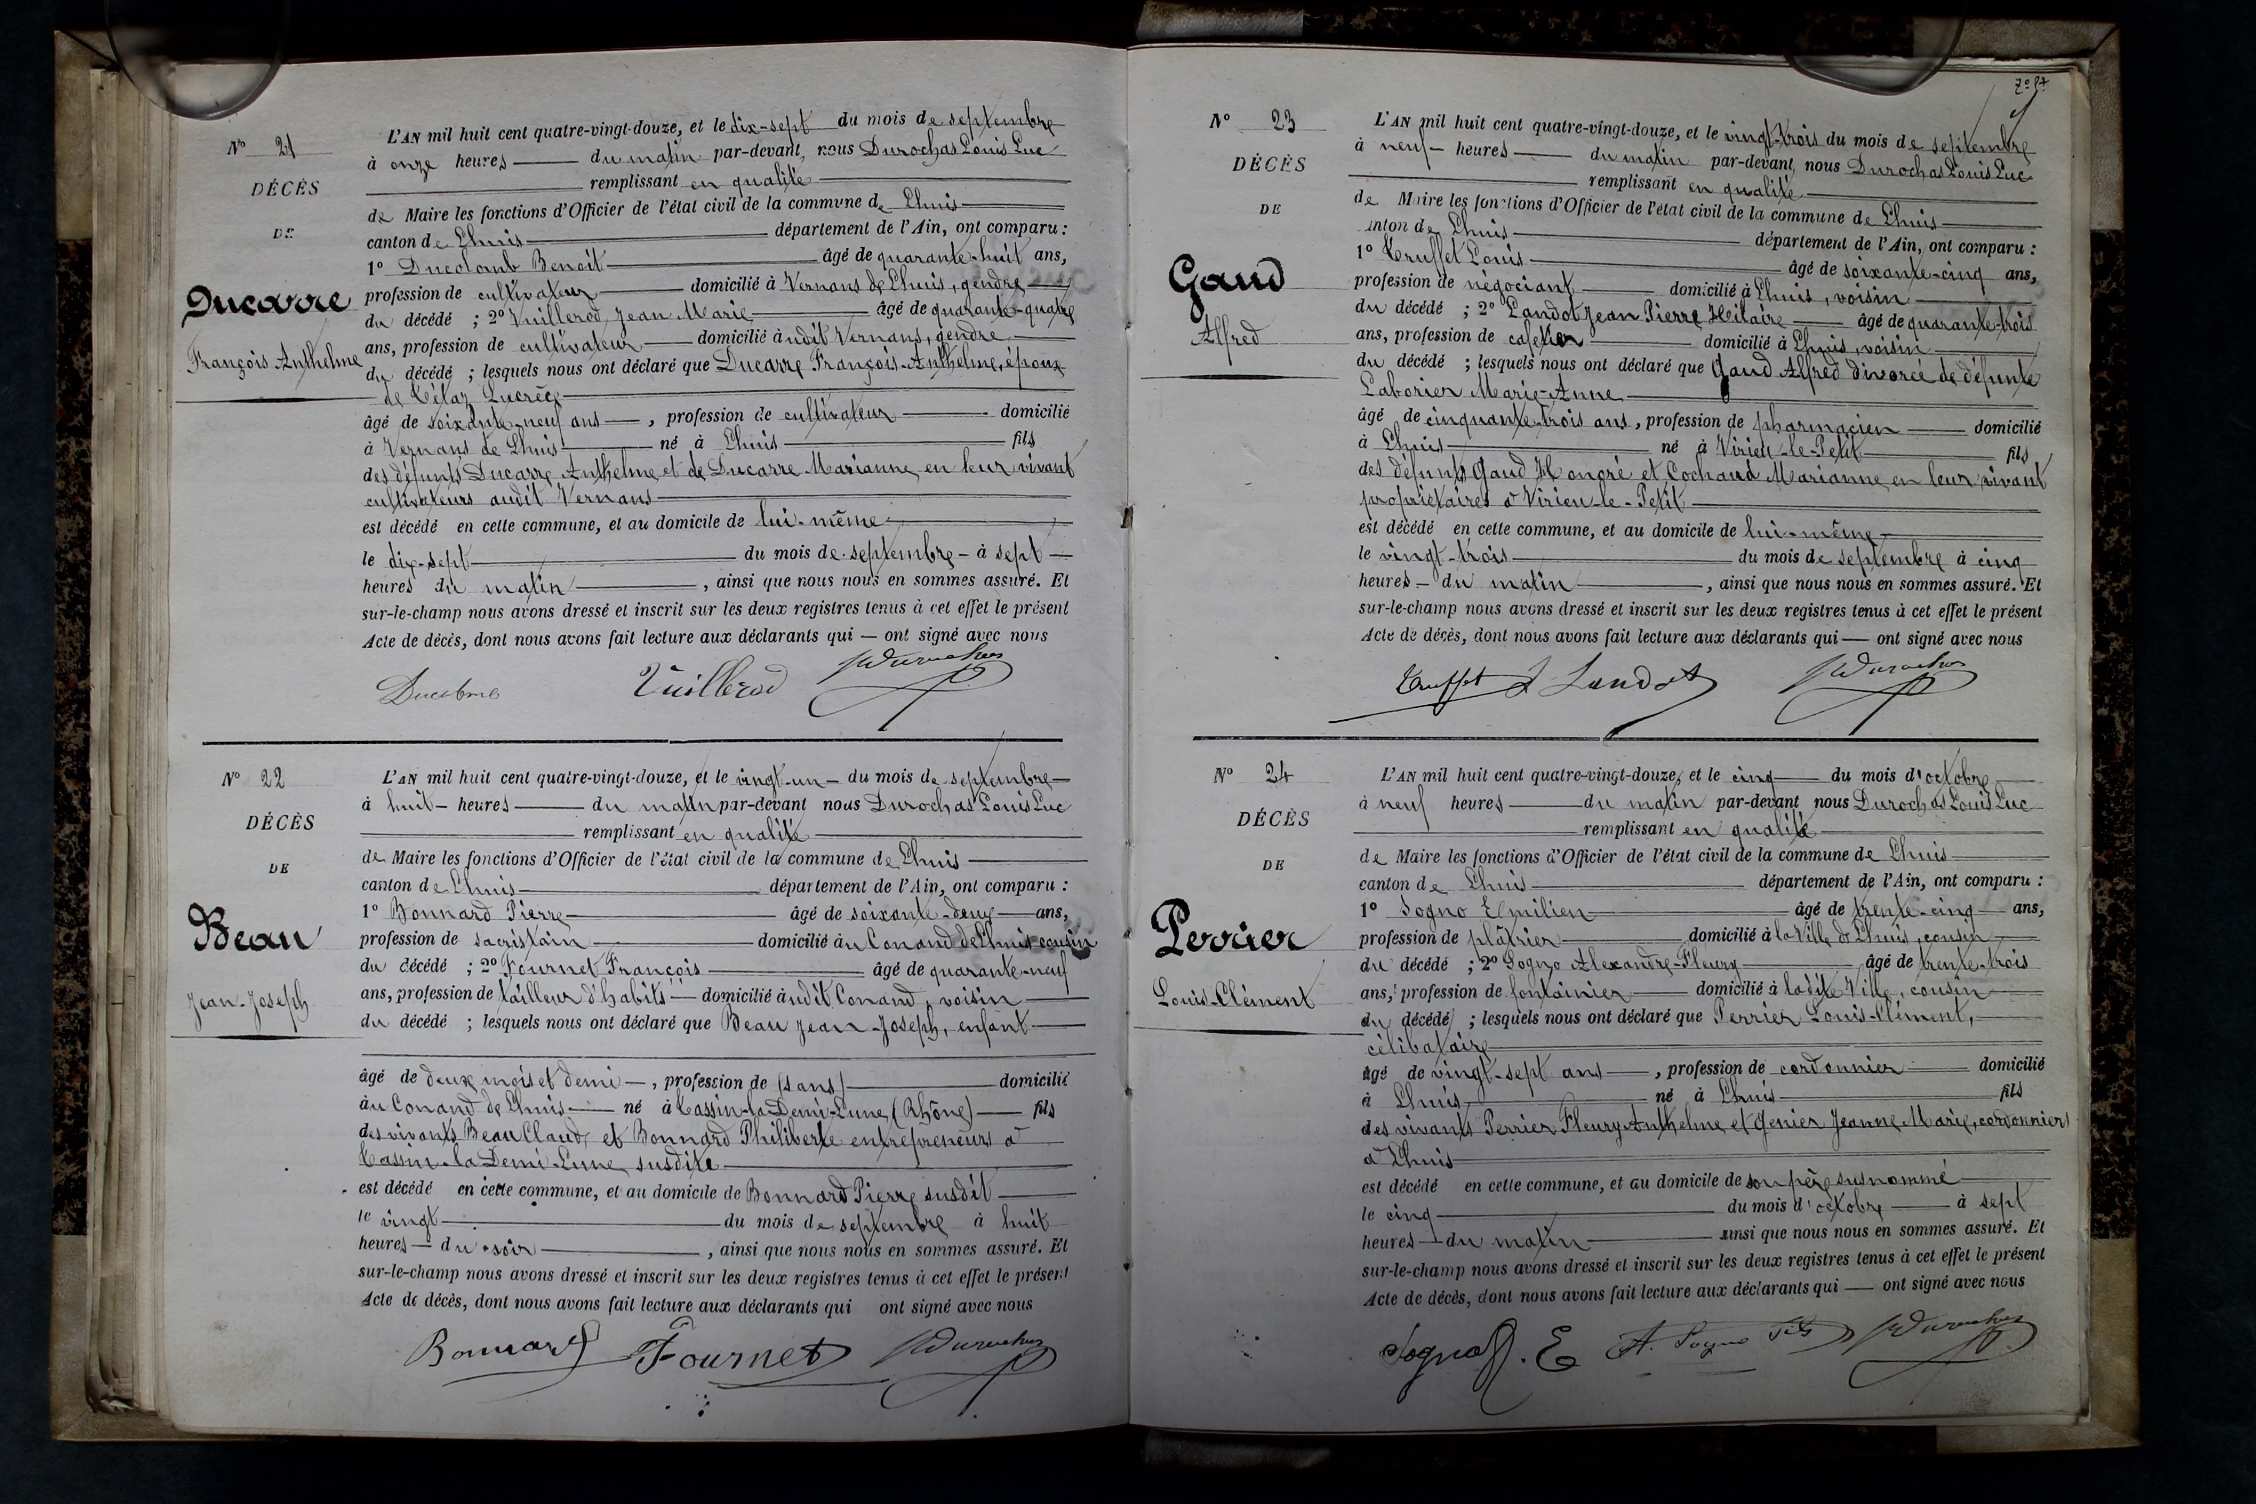 N° 21
DÉCÈS
DE
Ducarre
François Anthelme
L'AN mil huit cent quatre-vingt-douze, et le dix-sept du mois de septembre
à onze heures du matin par-devant, nous Durochas Louis Luc
remplissant en qualité
de Maire les fonctions d'Officier de l'état civil de la commune de Lhuis
canton de Lhuis département de l'Ain, ont comparu :
1° Ducolomb Benoit âgé de quarante-huit ans,
profession de cultivateur domicilié à Vernans de Lhuis, gendre
du décédé ; 2° Vuillerod Jean Marie âgé de quarante-quatre
ans, profession de cultivateur domicilié audit Vernans, gendre
du décédé ; lesquels nous ont déclaré que Ducarre François-Anthelme, époux
de Télaz Lucrèce
âgé de soixante-neuf ans, profession de cultivateur domicilié
à Vernans de Lhuis né à Lhuis fils
des défunts Ducarre Anthelme et de Ducarre Marianne en leur vivant
cultivateurs audit Vernans
est décédé en cette commune, et au domicile de lui-même
le dix-sept du mois de septembre - à sept
heures du matin, ainsi que nous nous en sommes assuré. Et
sur-le-champ nous avons dressé et inscrit sur les deux registres tenus à cet effet le présent
Acte de décès, dont nous avons fait lecture aux déclarants qui — ont signé avec nous
Vuillerod
N° 22
DÉCÈS
DE
Beau
Jean-Joseph
L'AN mil huit cent quatre-vingt-douze, et le vingt-un du mois de septembre
à huit heures du matin par-devant nous Durochas Louis Luc
remplissant en qualité
de Maire les fonctions d'Officier de l'état civil de la commune de Lhuis
canton de Lhuis département de l'Ain, ont comparu :
1° Bonnard Pierre âgé de soixante-deux ans,
profession de sacristain domicilié au Conand de Lhuis cousin
du décédé ; 2° Fournet François âgé de quarante-neuf
ans, profession de tailleur d'habits domicilié audit Conand, voisin
du décédé ; lesquels nous ont déclaré que Beau Jean-Joseph, enfant
âgé de deux mois et demi, profession de (sans) domicilié
au Conand de Lhuis né à Tassin-la-Demi-Lune (Rhône) fils
des vivants Beau Claude et Bonnard Philiberte entrepreneurs à
Tassin-la Demi-Lune susdite
est décédé en cette commune, et au domicile de Bonnard Pierre susdit
le vingt du mois de septembre à huit
heures du soir, ainsi que nous nous en sommes assuré. Et
sur-le-champ nous avons dressé et inscrit sur les deux registres tenus à cet effet le présent
Acte de décès, dont nous avons fait lecture aux déclarants qui ont signé avec nous
Bonnard Fournet
N° 23
DÉCÈS
DE
Gaud
Alfred
L'AN mil huit cent quatre-vingt-douze, et le vingt-trois du mois de septembre
à neuf heures du matin par-devant, nous Durochas Louis Luc
remplissant en qualité
de Maire les fonctions d'Officier de l'état civil de la commune de Lhuis
canton de Lhuis département de l'Ain, ont comparu :
1° Truffet Louis âgé de soixante-cinq ans,
profession de négociant domicilié à Lhuis, voisin
du décédé ; 2° Landot Jean Pierre Hilaire âgé de quarante-trois
ans, profession de cafetier domicilié à Lhuis, voisin
du décédé ; lesquels nous ont déclaré que Gaud Alfred divorcé de défunte
Laborier Marie-Anne
âgé de cinquante-trois ans, profession de pharmacien domicilié
à Lhuis né à Virieu-le-Petit fils
des défunts Gaud Honoré et Cochand Marianne en leur vivant
propriétaires à Virieu-le-Petit
est décédé en cette commune, et au domicile de lui-même
le vingt-trois du mois de septembre à cinq
heures du matin, ainsi que nous nous en sommes assuré. Et
sur-le-champ nous avons dressé et inscrit sur les deux registres tenus à cet effet le présent
Acte de décès, dont nous avons fait lecture aux déclarants qui — ont signé avec nous
Truffet L Landot
N° 24
DÉCÈS
DE
Perrier
Louis-Clément
L'AN mil huit cent quatre-vingt-douze, et le cinq du mois d'octobre
à neuf heures du matin par-devant nous Durochas Louis Luc
remplissant en qualité
de Maire les fonctions d'Officier de l'état civil de la commune de Lhuis
canton de Lhuis département de l'Ain, ont comparu :
1° Sogno Emilien âgé de trente-cinq ans,
profession de plâtrier domicilié à la Ville de Lhuis, cousin
du décédé ; 2° Sogno Alexandre-Fleury âgé de trente-trois
ans, profession de fontainier domicilié à ladite Ville, cousin
du décédé ; lesquels nous ont déclaré que Perrier Louis-Clément,
célibataire
âgé de vingt-sept ans, profession de cordonnier domicilié
à Lhuis né à Lhuis fils
des vivants Perrier Fleury Anthelme et Genier Jeanne Marie, cordonniers
à Lhuis
est décédé en cette commune, et au domicile de son père susnommé
le cinq du mois d'octobre à sept
heures du matin ainsi que nous nous en sommes assuré. Et
sur-le-champ nous avons dressé et inscrit sur les deux registres tenus à cet effet le présent
Acte de décès, dont nous avons fait lecture aux déclarants qui — ont signé avec nous
Sogno E A. Sogno